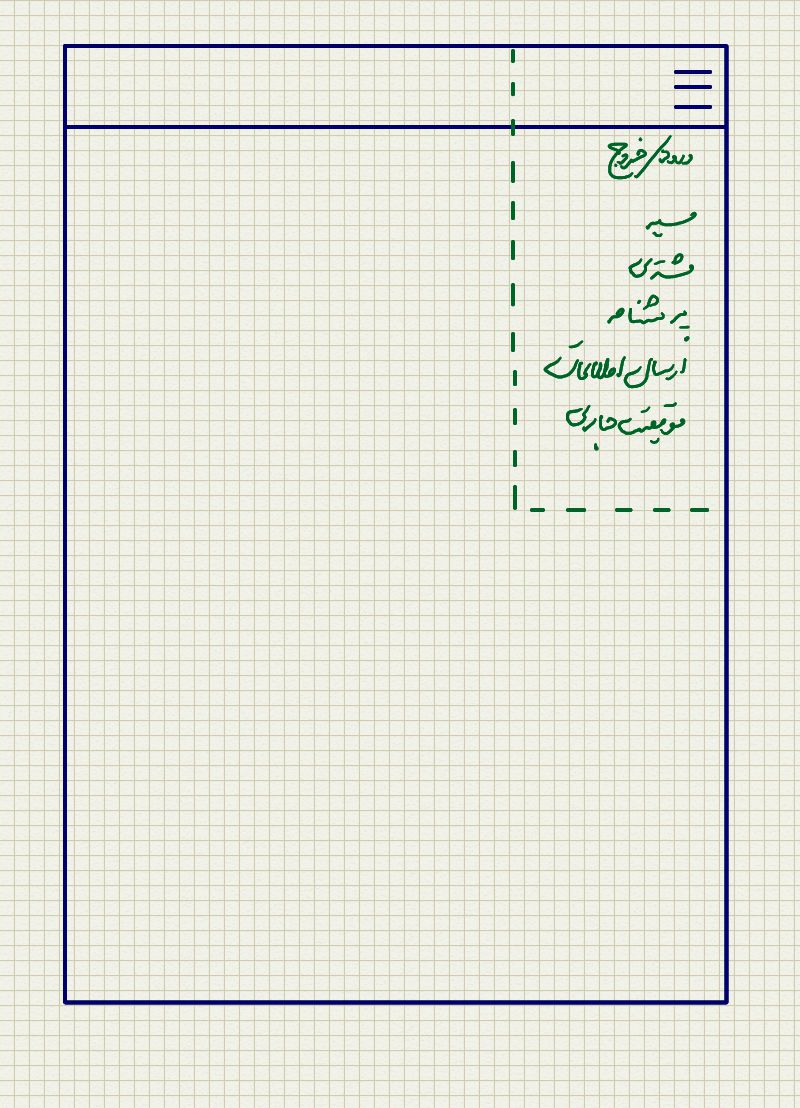 ورود/خروج
مسیر
مشتری
پرسشنامه
ارسال اطلاعات
موقعیت جاری